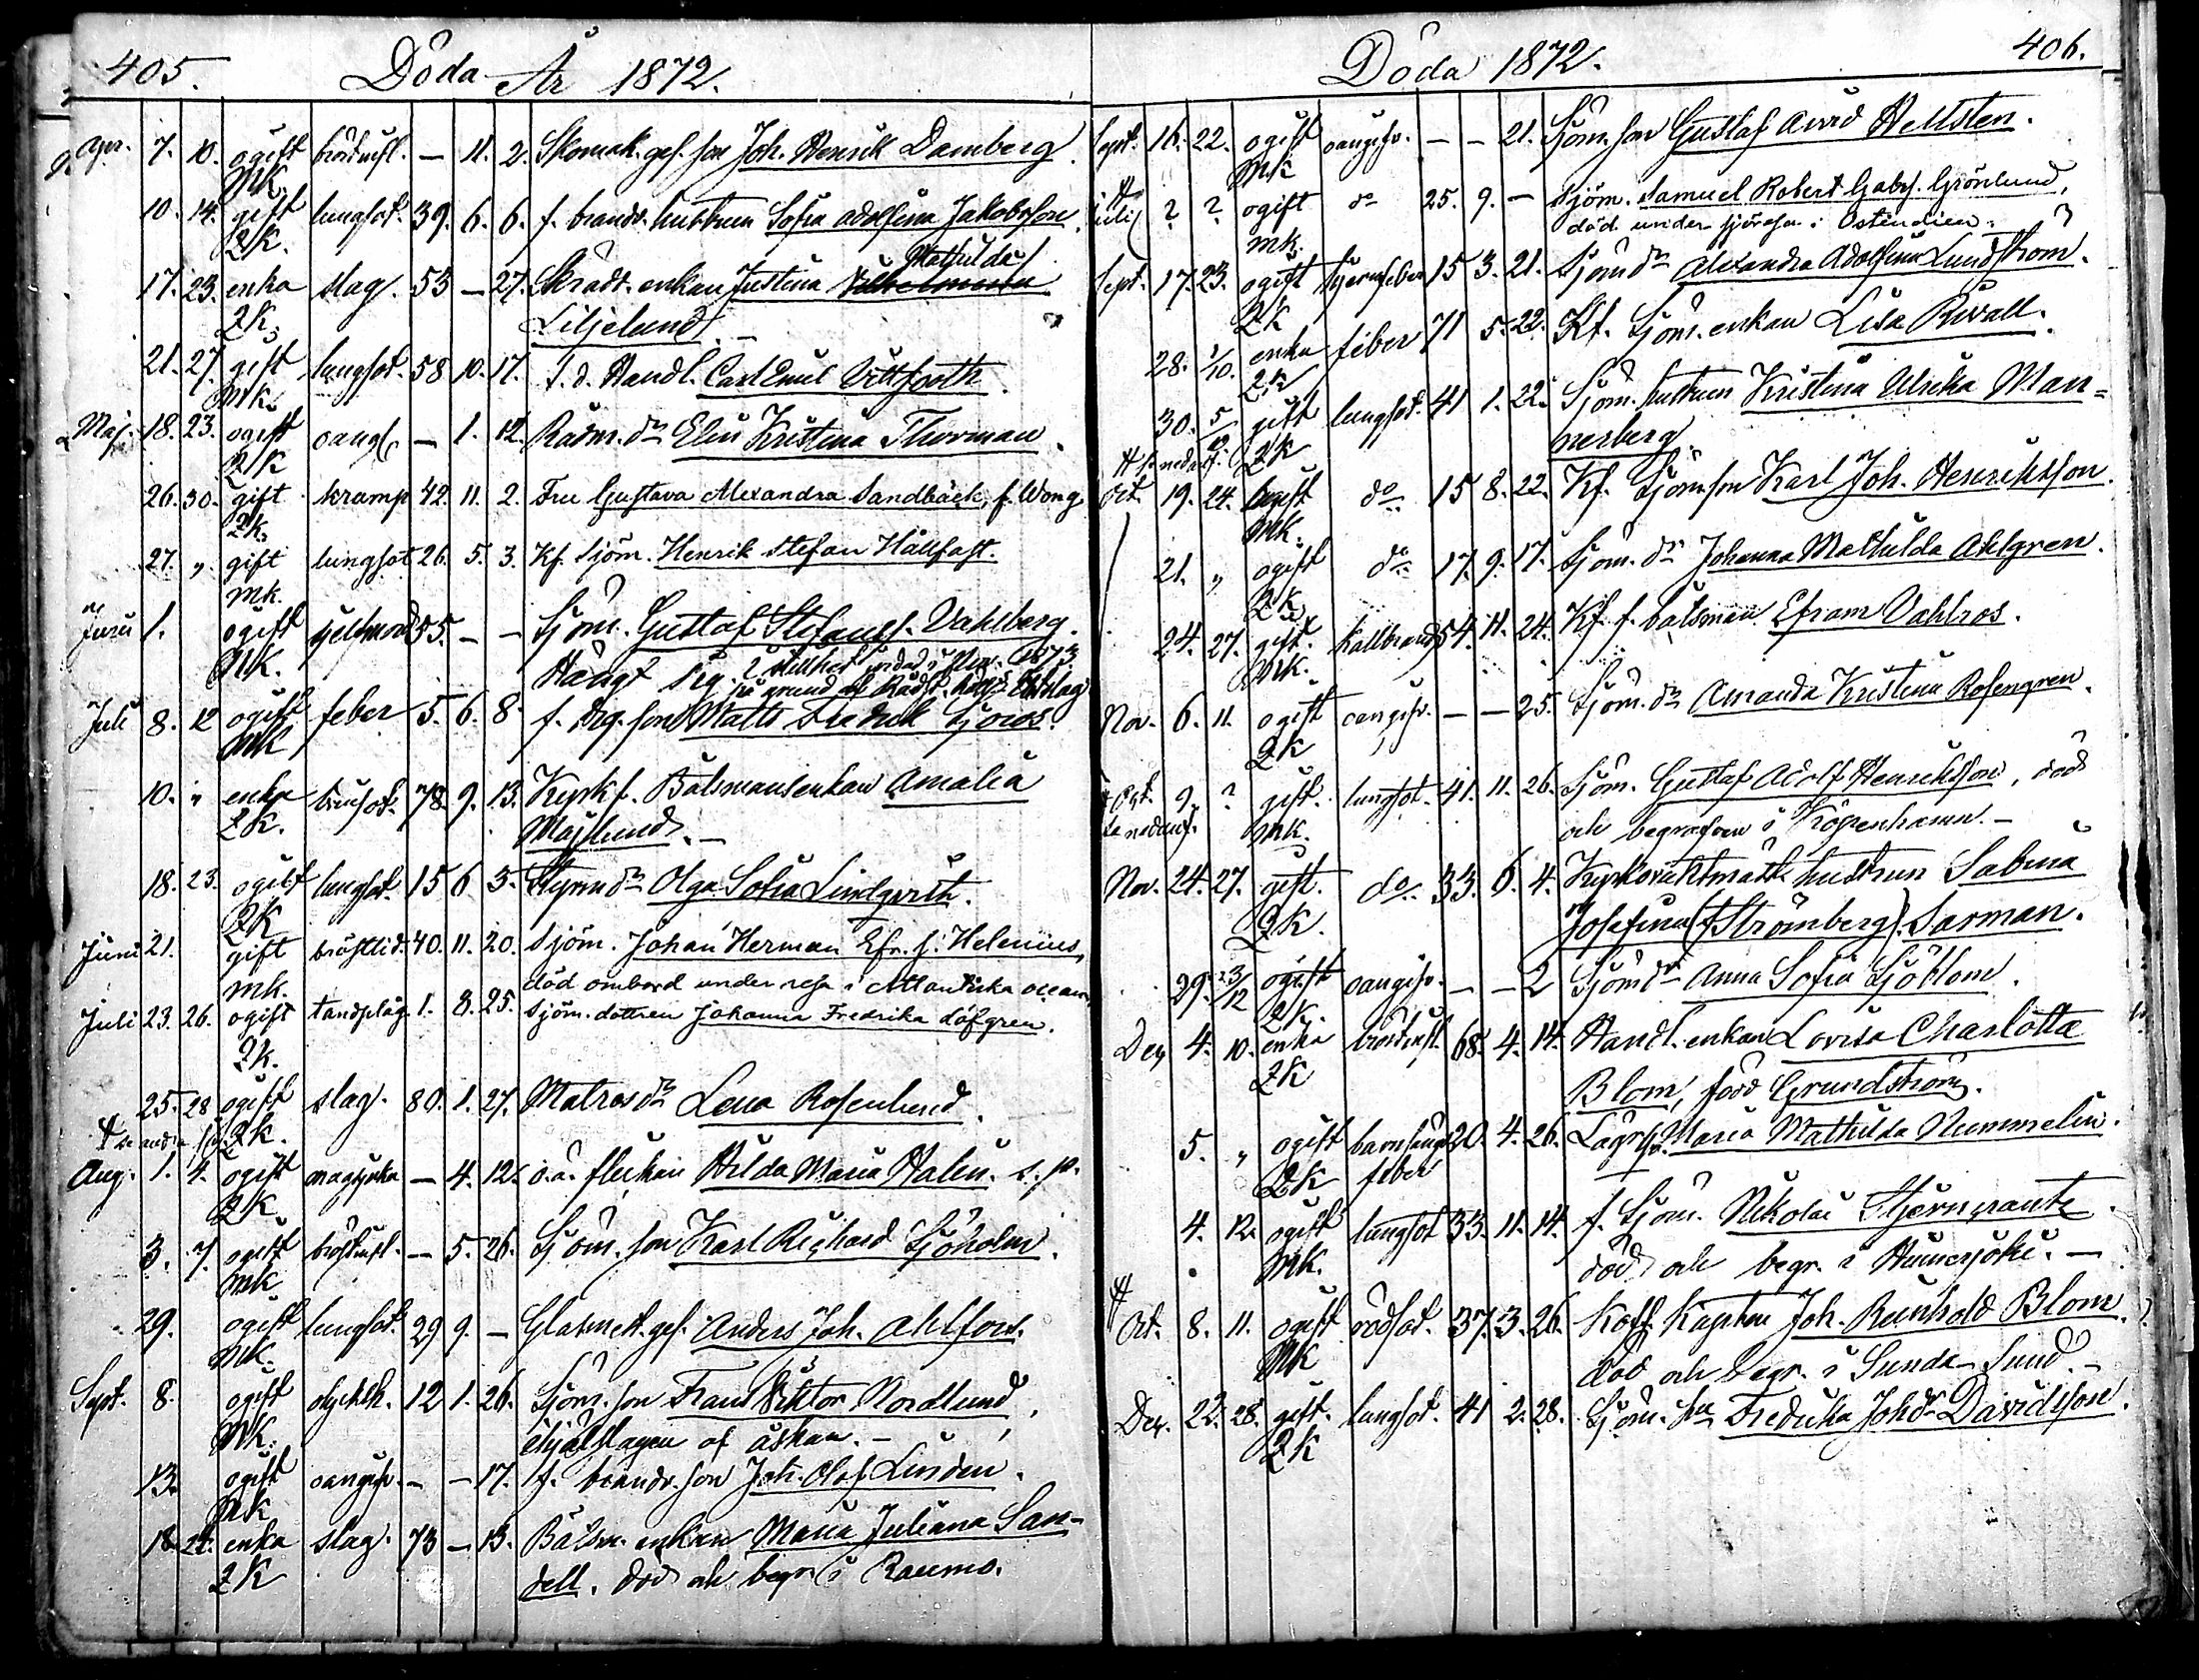 405. Döda År 1872.
Apr. 7. 10. ogift bröstinfl. — 11. 2. Skomak. ges. son Joh. Henrik Damberg.
MK.
10. 14. gift lungsot. 39. 6. 6. f. brandv. hustrun Sofia Adolfina Jakobsson.
QK.
Mathilda
17. 23. enka slag. 53 — 27. Skrädd. enkan Justina Vilhelmina
QK. Liljelund. —
21. 27. gift lungsot. 58 10. 17. f. d. Handl. Carl Emil Vittfooth.
MK.
Maj. 18. 23. ogift oangf. — 1. 12. Rådm. dr Elin Kristina Thorman.
QK
26. 30. gift kramp 42. 11. 2. Fru Gustava Alexandra Sandbäck, f. Wong.
QK.
27. „ gift lungsot 26. 5. 3. Kf. Sjöm. Henrik Stefan Hållfast.
mk.
Juni 1. ogift sjelfmord 55. — — Sjöm. Gustaf Stefanss. Vahlberg.
MK. Hängt sig. I stillhet jordad i 1873
på grund af Rådst. Rätts Utslag
Juli 8. 12 ogift feber 5. 6. 8. f. drg. son Matts Fredrik Sjöros.
MK
10. „ enka 78. 9. 13. Kyrkf. Båtsmansenkan Amalia
QK. Majlund. —
18. 23. ogift lungsot. 15 6 5. Styrm dr Olga Sofia Lindqvist.
QK
Juni 21. gift bröstlid. 40. 11. 20. Sjöm. Johan Herman Efr. s. Helenius,
mk. död ombord under resa i Atlantiska ocean
Juli 23. 26. ogift tandplåg. 1. 8. 25. Sjöm. dottren Johanna Fredrika Löfgren.
QK.
25. 28 ogift slag. 80. 1. 27. Matros dr Lena Rosenlund.
QK.
Aug. 1. 4. ogift magsjuka — 4. 12. o. ä. flickan Hilda Maria Halin. s. p.
QK
3. 7. ogift bröstinfl. — 5. 26. Sjöm. son Karl Richard Sjöholm.
mk
29. ogift lungsot. 29 9. — Glasmäst. ges. Anders Joh. Ahlfors.
MK.
Sept. 8. ogift olyckh. 12 1. 26. Sjöm. son Frans Viktor Nordlund,
MK. ihjälslagen af åskan. —
13. ogift oangifv. — — 17. f. brandv. son Joh. Olof Linden.
MK
18 24. enka slag. 73 — 13. Båtsm. enkan Maria Juliana San-
QK dell. död och begr. i Raumo.
Döda 1872. 406.
Sept. 16. 22. ogift oangifv. — — 21. Sjöm. son Gustaf Arvid Hellsten.
MK
Juli ? ? ogift do 25. 9. — Sjöm. Samuel Robert Gabrs. Grönlund,
mk. död under sjöresa i Ostindien.
Sept. 17. 23. ogift hjernfeber 15 3. 21. Sjöm dr Alexandra Adolfina Lundström.
QK
28. 1/10. enka feber 71 5. 22. Kf. Sjöm. enkan Lisa Rivall.
QK
30. 5/10 gift lungsot. 41 1. 22. Sjöm. hustrun Kristina Ulrika Man=
QK nerberg.
Oct. 19. 24. ogift do 15 8. 22. Kf. Sjöm. son Karl Joh. Henriksson.
MK.
21. „ ogift do 17. 9. 17. Sjöm. dr Johanna Mathilda Ahlgren.
QK
24. 27. gift. kallbrand 54. 11. 24. Kf. f. båtsman Efraim Vahlros.
MK.
Nov. 6. 11. ogift oangifv. — — 25. Sjöm. dr Amanda Kristina Rosengren.
QK
Oct. 9. ? gift. lungsot. 41. 11. 26. Sjöm. Gustaf Adolf Henriksson, död
se nedanf. MK. och begrafven i Köpenhamn. —
Nov. 24. 27. gift. do 33. 6. 4. Kyrkovaktmäst. hustrun Sabina
QK. Josefina (f Strömberg) Sarman.
29. 3/12 ogift oangifv. — — 2 Sjöm dr Anna Sofia Sjöblom.
QK.
Dec. 4. 10. enka bröstinfl. 68. 4. 14. Handl. enkan Lovisa Charlotta
QK Blom, född Grundström.
5. „ ogift barnsäng 20. 4. 26. Maria Mathilda Nummelin.
QK feber
4. 12. ogift lungsot 33. 11. 14. f. Sjöm. Nikolai Stjerncrantz
MK. död och begr. i Hvinersjöki. —
Oct. 8. 11. ogift rödsot. 37. 3. 26. Koff. Kapten Joh. Reinhold Blom.
MK död och begr. i Sunda-Sund. —
Dec. 22. 28. gift. lungsot. 41 2. 28. Sjöm. hu Fredrika Johdr Davidsson.
QK